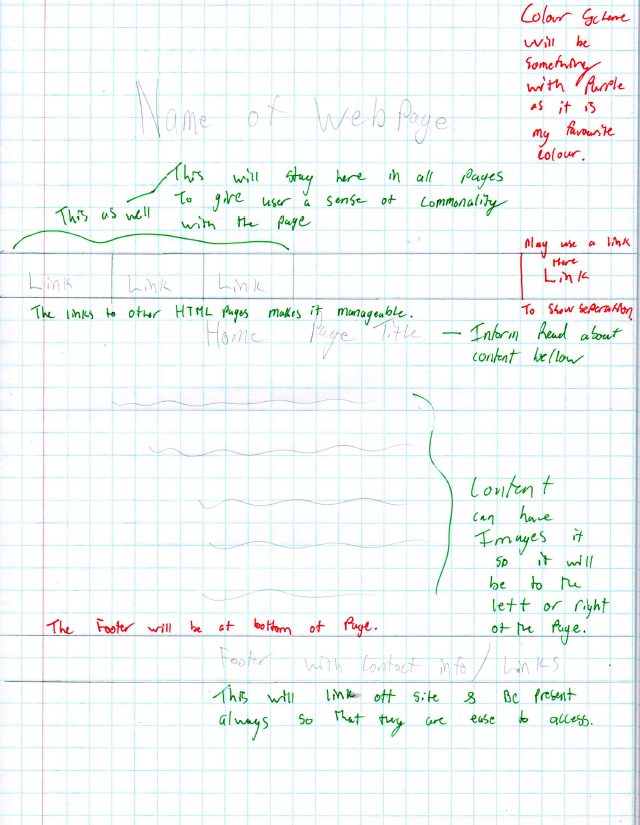 Colour Scheme
will be
something
with Purple
as it is
my favourite
colour.
Name of Webpage.
This will stay here in all pages
To give user a sense of commonality
with the page
This as well
May use a link
Here
Link
To show separation
Link Link Link
The links to other HTML Pages makes it manageable.
Home Page Title
— Inform Read about
content bellow
Content
can have
Images if
so it will
be to the
left or right
of the Page.
The Footer will be at bottom of Page.
Footer with Contact info/ Links
This will link off site & Be present
always so that they are ease to access.